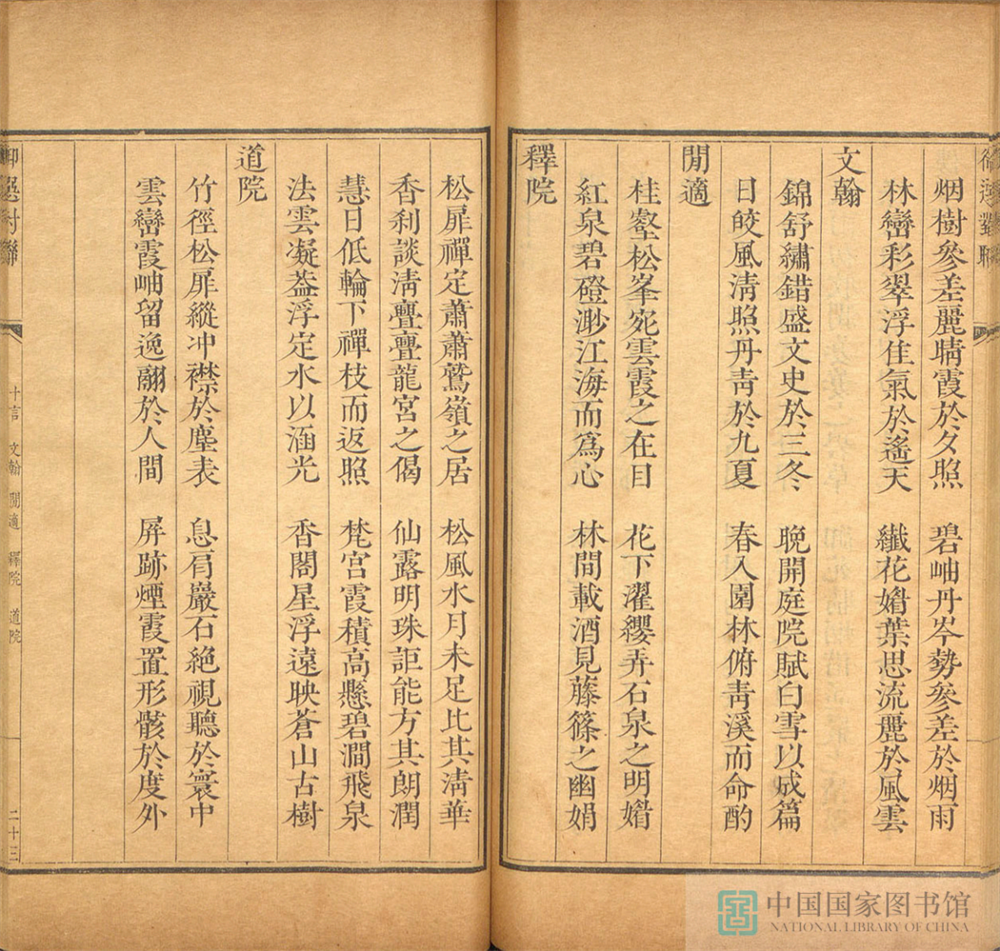 烟樹參差麗晴霞於夕照　碧岫丹岑勢參差於烟雨
林巒彩翠浮佳氣於遙天　纖花媘葉思流麗於風雲
文翰
錦舒繡錯盛文史於三冬　晚開庭院賦白雪以成篇
日皎風清照丹青於九夏　春入園林俯青溪而命酌
閒適
桂壑松峯宛雲霞之在目　花下濯纓弄石泉之明媘
紅泉碧磴渺江海而爲心　林間載酒見藤篠之幽娟
釋院
松扉禪定蕭蕭鷲嶺之居　松風水月未足比其清華
香刹談清亹亹龍宮之偈　仙露明珠詎能方其朗潤
慧日低輪下禪枝而返照　梵宮霞積高懸碧澗飛泉
法雲凝葢浮定水以涵光　香閣星浮遠映蒼山古樹
道院
竹徑松扉縱冲襟於塵表　息肩巖石絕視聽於寰中
雲巒霞岫留逸翮於人間　屏跡煙霞置形骸於度外
十言　文翰　閒適　釋院　道院　二十三
中国国家图书馆
NATIONAL LIBRARY OF CHINA